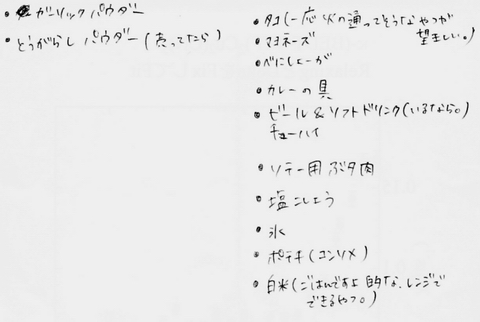 • ガーリックパウダー
• とうがらしパウダー(売ってたら)
• タコ(一応火の通ってそうなやつが
望ましい。)
• マヨネーズ
• べにしょーが
• カレーの具
• ビール&ソフトドリンク(いるなら。)
チューハイ
• ソテー用ぶタ肉
• 塩こしょう
• 氷
• ポテチ(コンソメ)
• 白米(ごはんですよ的な、レンジで
できるやつ。)